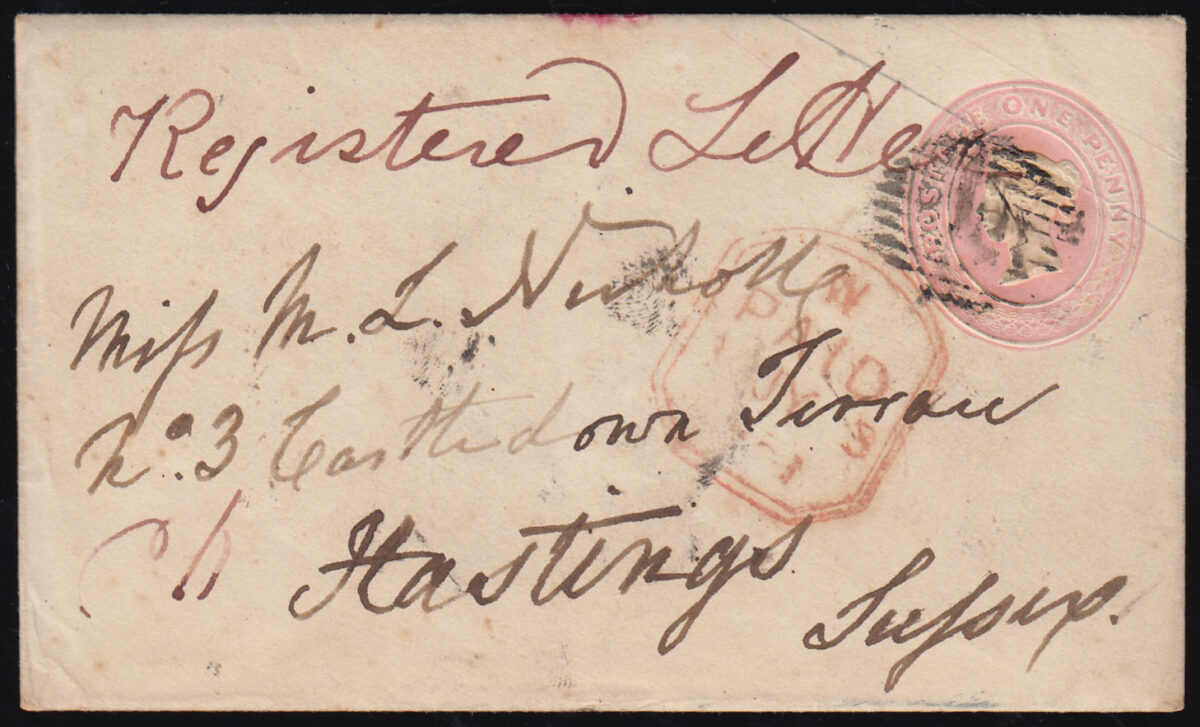 Registered Letter
POSTAGE ONE PENNY
Miss M. L. Nicholls
N
PAID
No. 3 Castledown Terrace
Hastings
Sussex.